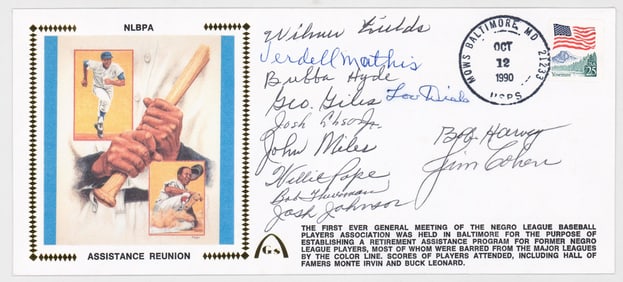 NLBPA
ASSISTANCE REUNION
Wilmer Fields
Verdell Mathis
Bubba Hyde
Geo. Giles
Lou Dials
Josh Gibson Jr.
John Miles
Bob Harvey
Jim Cohen
Willie Pope
Bob Thurman
Josh Johnson
MOWS BALTIMORE, MD 21233
OCT
12
1990
USPS
USA
25
Yosemite
GS
THE FIRST EVER GENERAL MEETING OF THE NEGRO LEAGUE BASEBALL
PLAYERS ASSOCIATION WAS HELD IN BALTIMORE FOR THE PURPOSE OF
ESTABLISHING A RETIREMENT ASSISTANCE PROGRAM FOR FORMER NEGRO
LEAGUE PLAYERS, MOST OF WHOM WERE BARRED FROM THE MAJOR LEAGUES
BY THE COLOR LINE. SCORES OF PLAYERS ATTENDED, INCLUDING HALL OF
FAMERS MONTE IRVIN AND BUCK LEONARD.